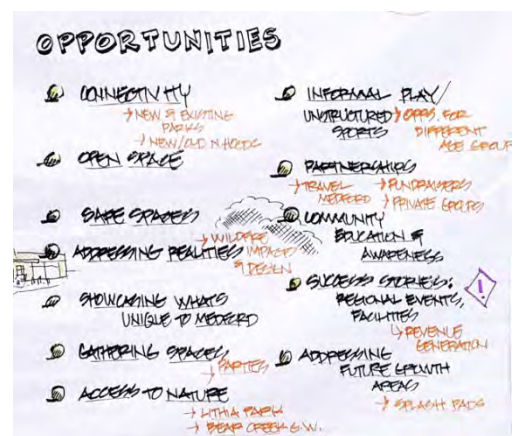 OPPORTUNITIES
CONNECTIVITY
→ NEW & EXISTING
PARKS
→ NEW/OLD N.HOODS
OPEN SPACE
SAFE SPACES
ADDRESSING REALITIES
→ WILDFIRE
IMPACT
& DESIGN
SHOWCASING WHAT'S
UNIQUE TO MEDFORD
GATHERING SPACES
→ PARTIES
ACCESS TO NATURE
→ LITHIA PARK
→ BEAR CREEK G.W.
INFORMAL PLAY/
UNSTRUCTURED
SPORTS
→ OPPS. FOR
DIFFERENT
AGE GROUP
PARTNERSHIPS
→ TRAVEL
MEDFORD
→ FUNDRAISERS
→ PRIVATE GROUPS
COMMUNITY
EDUCATION &
AWARENESS
SUCCESS STORIES:
REGIONAL EVENTS,
FACILITIES
!
↳ REVENUE
GENERATION
ADDRESSING
FUTURE GROWTH
AREAS
→ SPLASH PADS